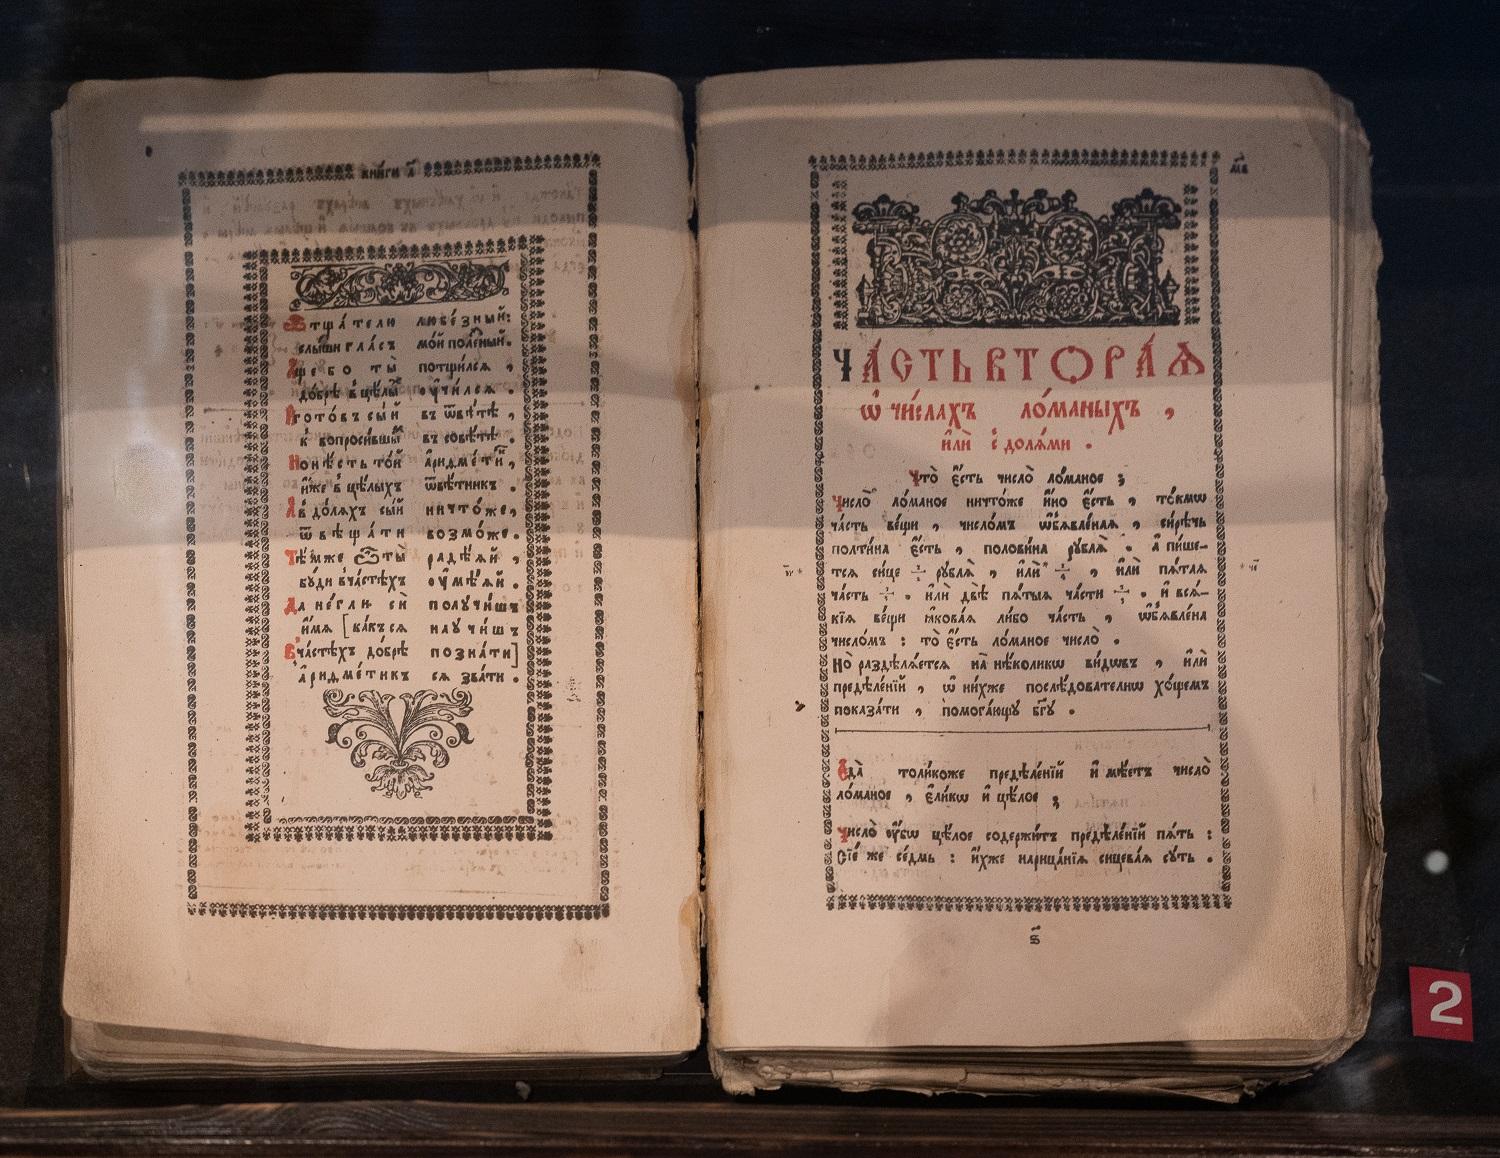 книги а҃
Ѿтща́телю любе́зный:
слы́ши гла́съ мо́й поле́зный.
Ꙗ҆́ще бо ты̀ потщи́лсѧ ,
до́брѣ в̾цѣ́лыⷯ ѹ҆чи́лсѧ .
Гото́въ сы́й въ ѿвѣ́тѣ ,
к̾ вопроси́вшыⷨ въ совѣ́тѣ .
Но нѣ́сть то́й а҆ридме́тїй ,
и҆́же в̾ цѣ́лыхъ ѿвѣ́тникъ .
А҆ в̾ до́лѧхъ сы́й ничто́же ,
ѿвѣща́ти возмо́же .
Тѣ́мже ѽ ты̀ радѣ́ѧй ,
бу́ди в̾ ча́стѣхъ ѹ҆мѣ́ѧй .
Да не́гли сѝ полу́чишъ
и҆́мѧ [ ка́къ сѧ нау́чишъ
В̾ ча́стѣхъ до́брѣ позна́ти ]
а҆ридме́тикъ сѧ зва́ти .
м҃в
ЧА́СТЬ ВТОРА́Ѧ
ѡ҆ чи́слахъ ло́маныхъ ,
и҆лѝ с̾ до́лѧми .
Что̀ є҆́сть число̀ ло́маное ;
Число̀ ло́маное ничто́же и҆́но є҆́сть , то́кмѡ
ча́сть ве́щи , число́мъ ѡ҆б̾ѧвле́наѧ , си́рѣчь
полти́на є҆́сть , полови́на рублѧ̀ . а҆ пи́ше-
тсѧ си́це ÷ рублѧ̀ , и҆лѝ ÷ , и҆лѝ пѧ́таѧ
ча́сть ÷ . и҆лѝ двѣ̀ пѧ́тыѧ ча́сти ÷ . и҆ всѧ́-
кїѧ ве́щи ꙗ҆кова́ѧ либо ча́сть , ѡ҆б̾ѧвле́на
число́мъ : то̀ є҆́сть ло́маное число̀ .
Но̀ раздѣлѧ́етсѧ на̀ нѣ́коликѡ ви́дѡвъ , и҆лѝ
предѣле́нїй , ѡ҆ ни́хже послѣ́дователнѡ хо́щемъ
показа́ти , помога́ющу бг҃у .
Є҆да̀ толи́коже предѣле́нїй и҆мѣ́етъ число̀
ло́маное , є҆ли́кѡ и҆ цѣ́лое ;
Число̀ ѹ҆́бѡ цѣ́лое содержи́тъ предѣле́нїй пѧ́ть :
Сїе́ же се́дмь : и҆́хже нарица́нїѧ сицева́ѧ су́ть .
2